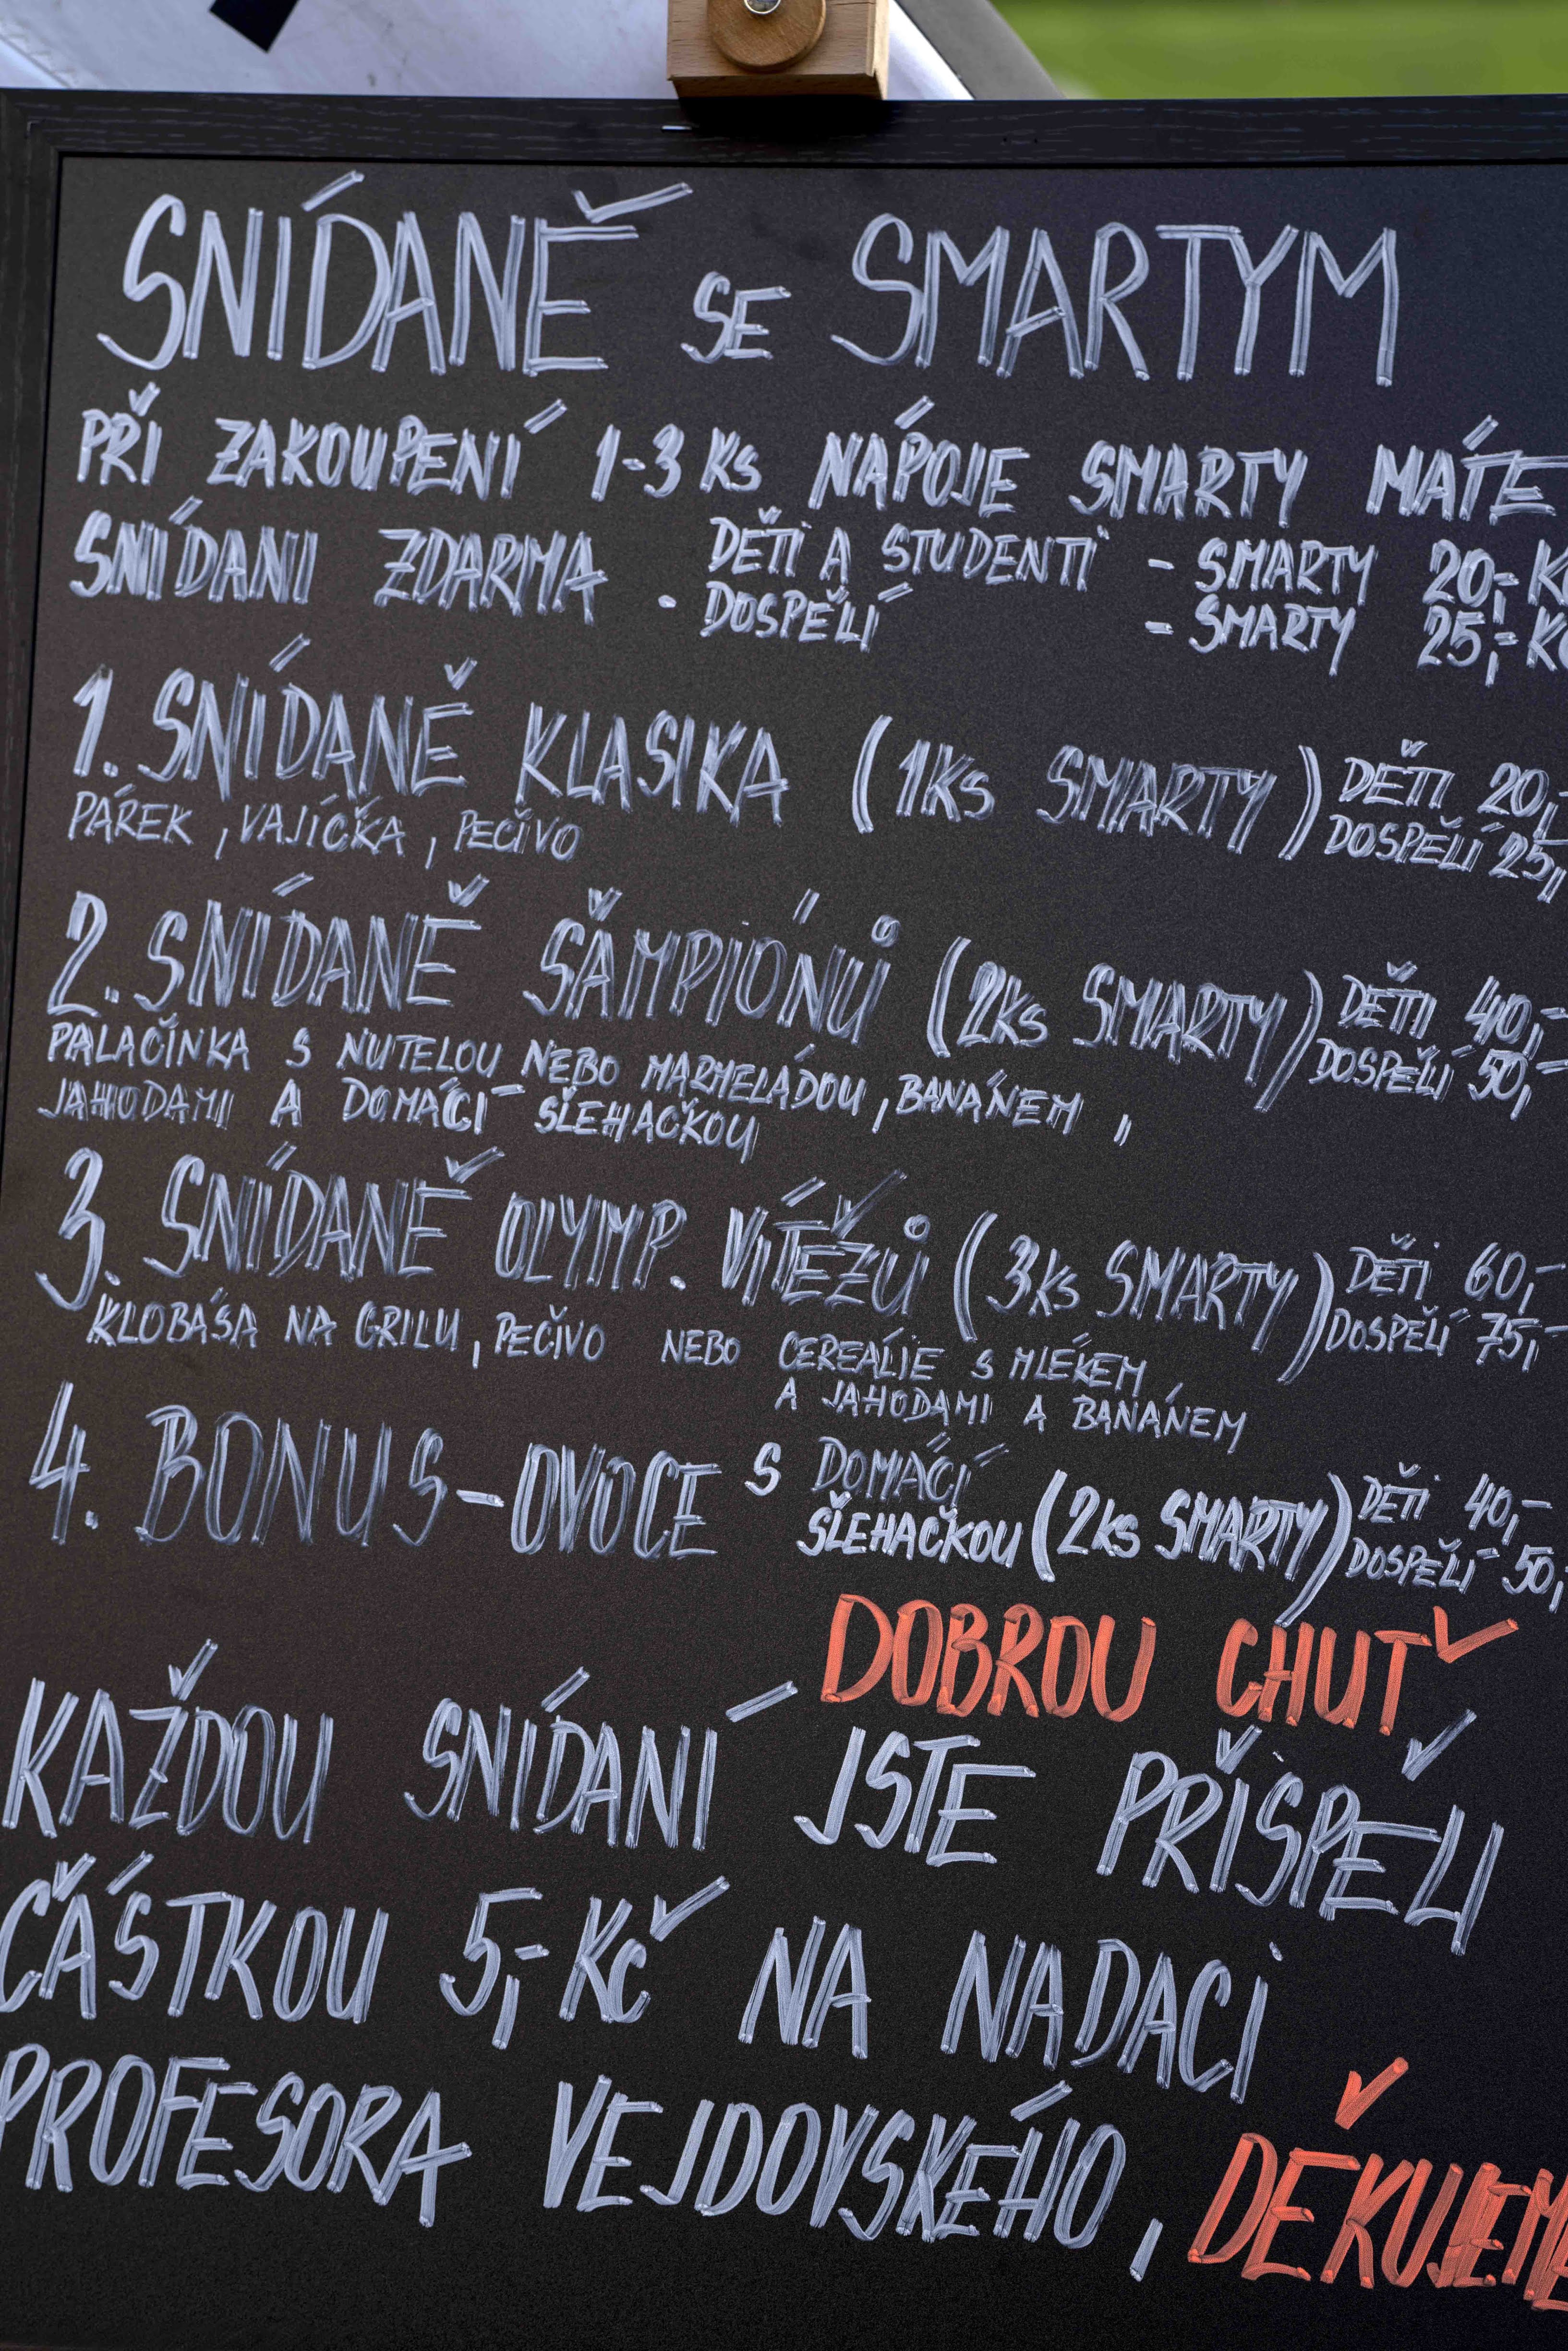 SNÍDANĚ SE SMARTYM
PŘI ZAKOUPENÍ 1-3 KS NÁPOJE SMARTY MÁTE
SNÍDANI ZDARMA. DĚTI A STUDENTI - SMARTY 20,- K
DOSPĚLÍ - SMARTY 25,- KČ
1. SNÍDANĚ KLASIKA (1KS SMARTY) DĚTI 20,-
DOSPĚLÍ 25,-
PÁREK, VAJÍČKA, PEČIVO
2. SNÍDANĚ ŠAMPIÓNŮ (2KS SMARTY) DĚTI 40,-
DOSPĚLÍ 50,-
PALAČINKA S NUTELOU NEBO MARMELÁDOU, BANÁNEM,
JAHODAMI A DOMÁCÍ ŠLEHAČKOU
3. SNÍDANĚ OLYMP. VÍTĚZŮ (3KS SMARTY) DĚTI 60,-
DOSPĚLÍ 75,-
KLOBÁSA NA GRILU, PEČIVO NEBO CEREÁLIE S MLÉKEM
A JAHODAMI A BANÁNEM
4. BONUS-OVOCE S DOMÁCÍ
ŠLEHAČKOU (2KS SMARTY) DĚTI 40,-
DOSPĚLÍ 50,-
DOBROU CHUŤ
KAŽDOU SNÍDANÍ JSTE PŘISPĚLI
ČÁSTKOU 5,- KČ NA NADACI
PROFESORA VEJDOVSKÉHO, DĚKUJEME